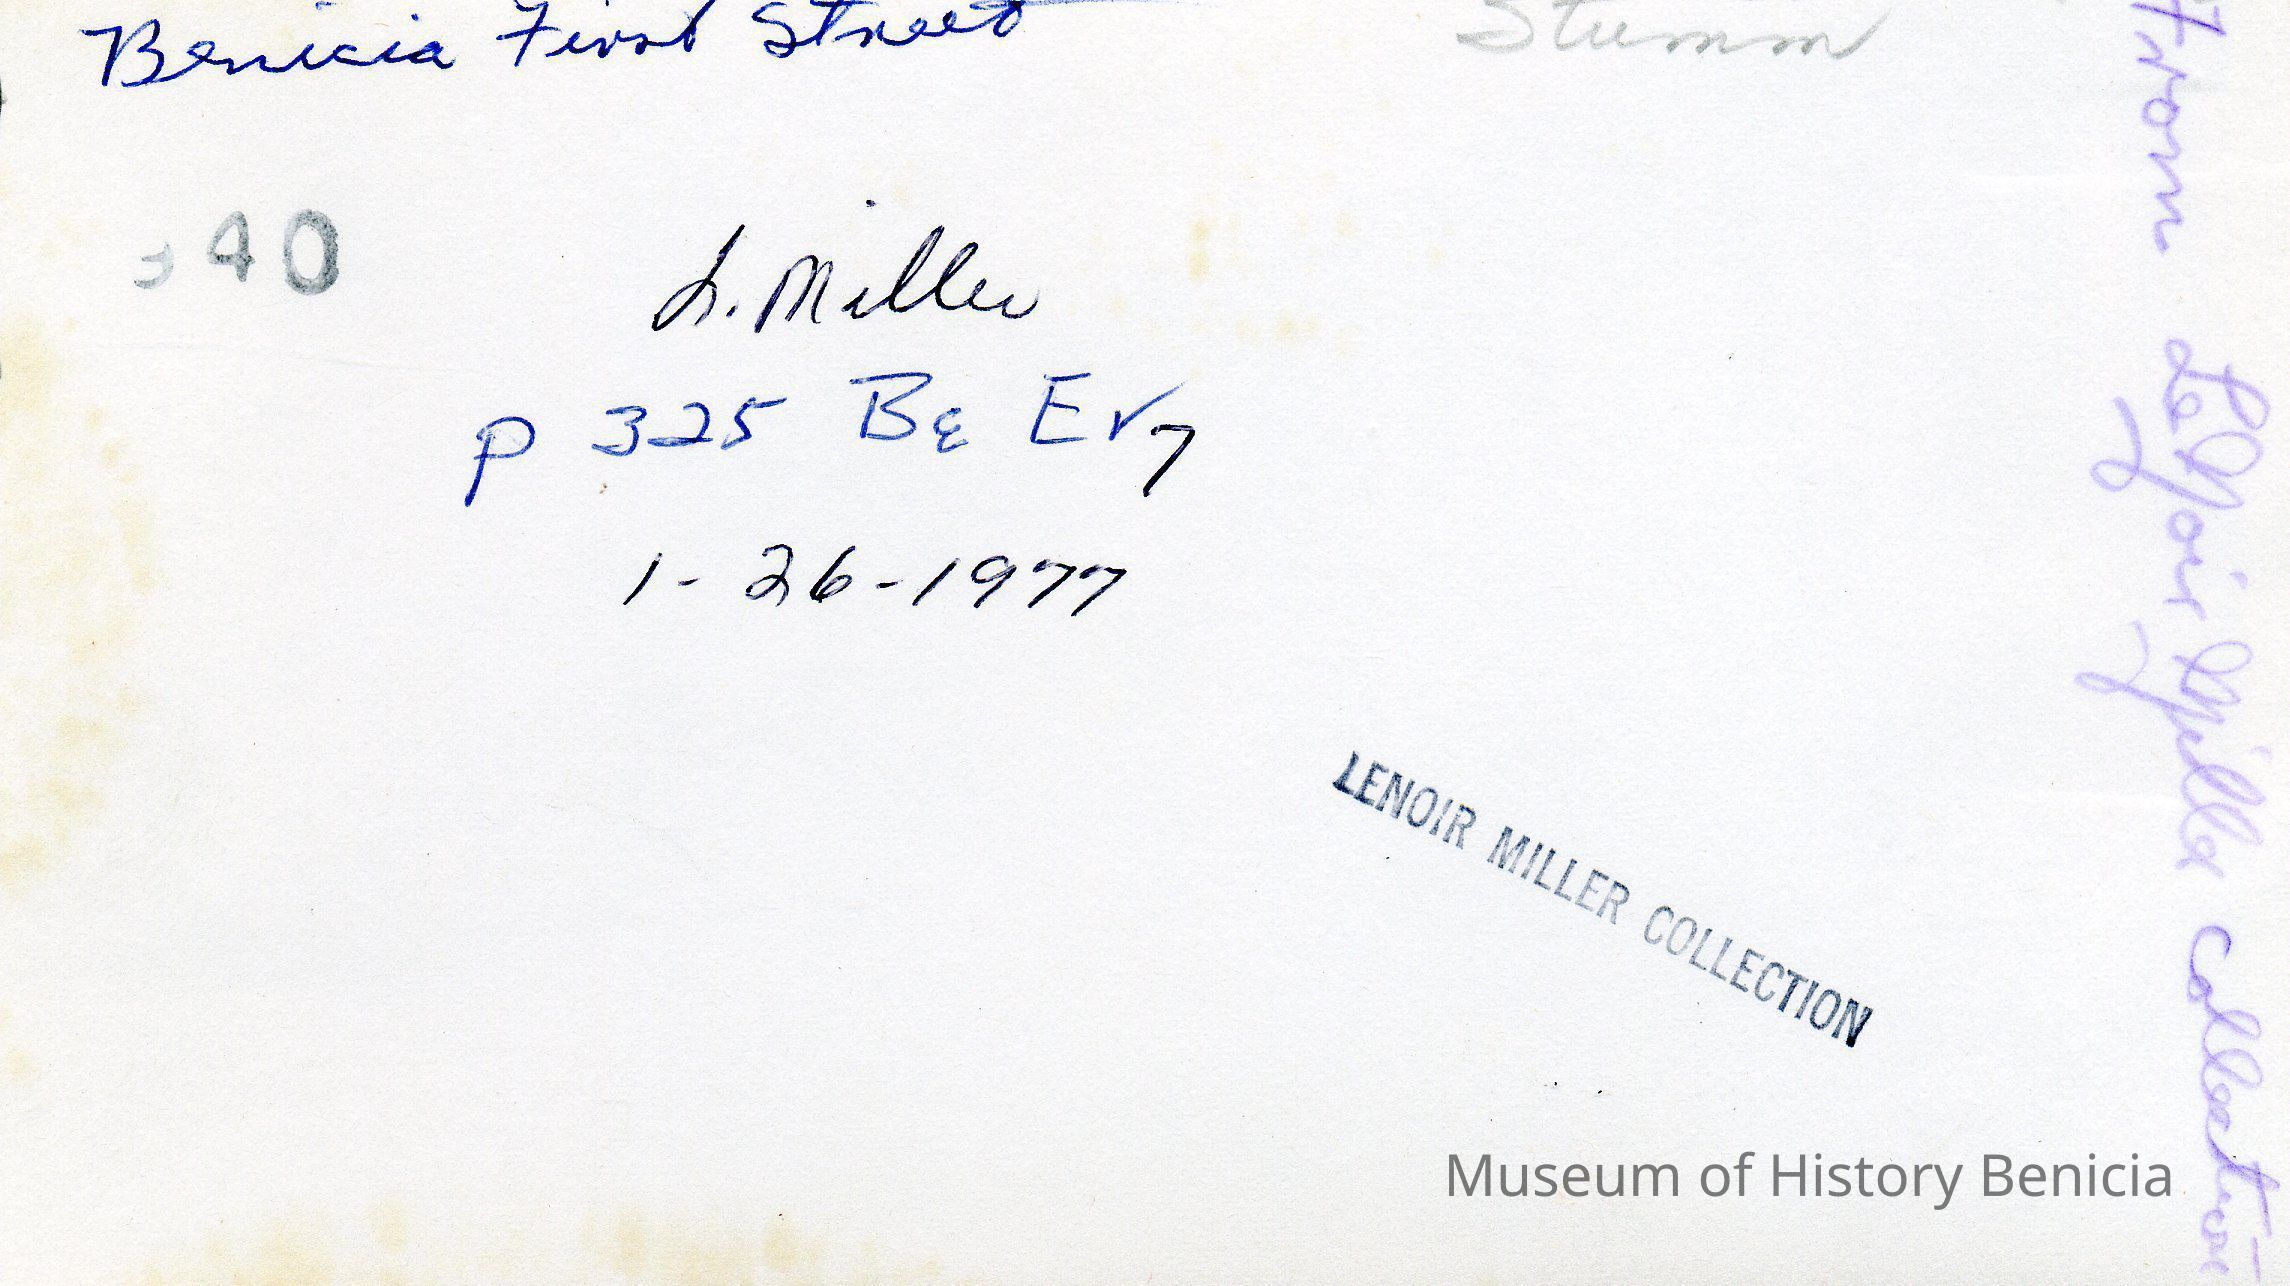 Benicia First Street
Stumm
40
L. Miller
p 325 Be Ev 7
1-26-1977
LENOIR MILLER COLLECTION
From LeNoir Miller collection
Museum of History Benicia